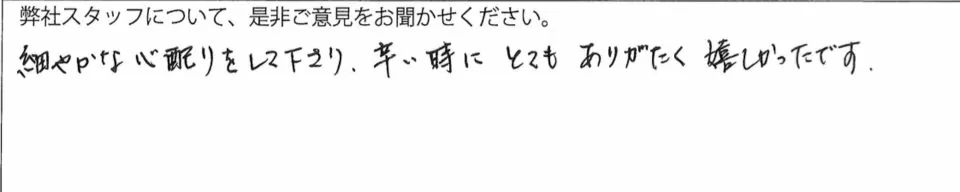 弊社スタッフについて、是非ご意見をお聞かせください。
細やかな心配りをして下さり、辛い時にとてもありがたく嬉しかったです.